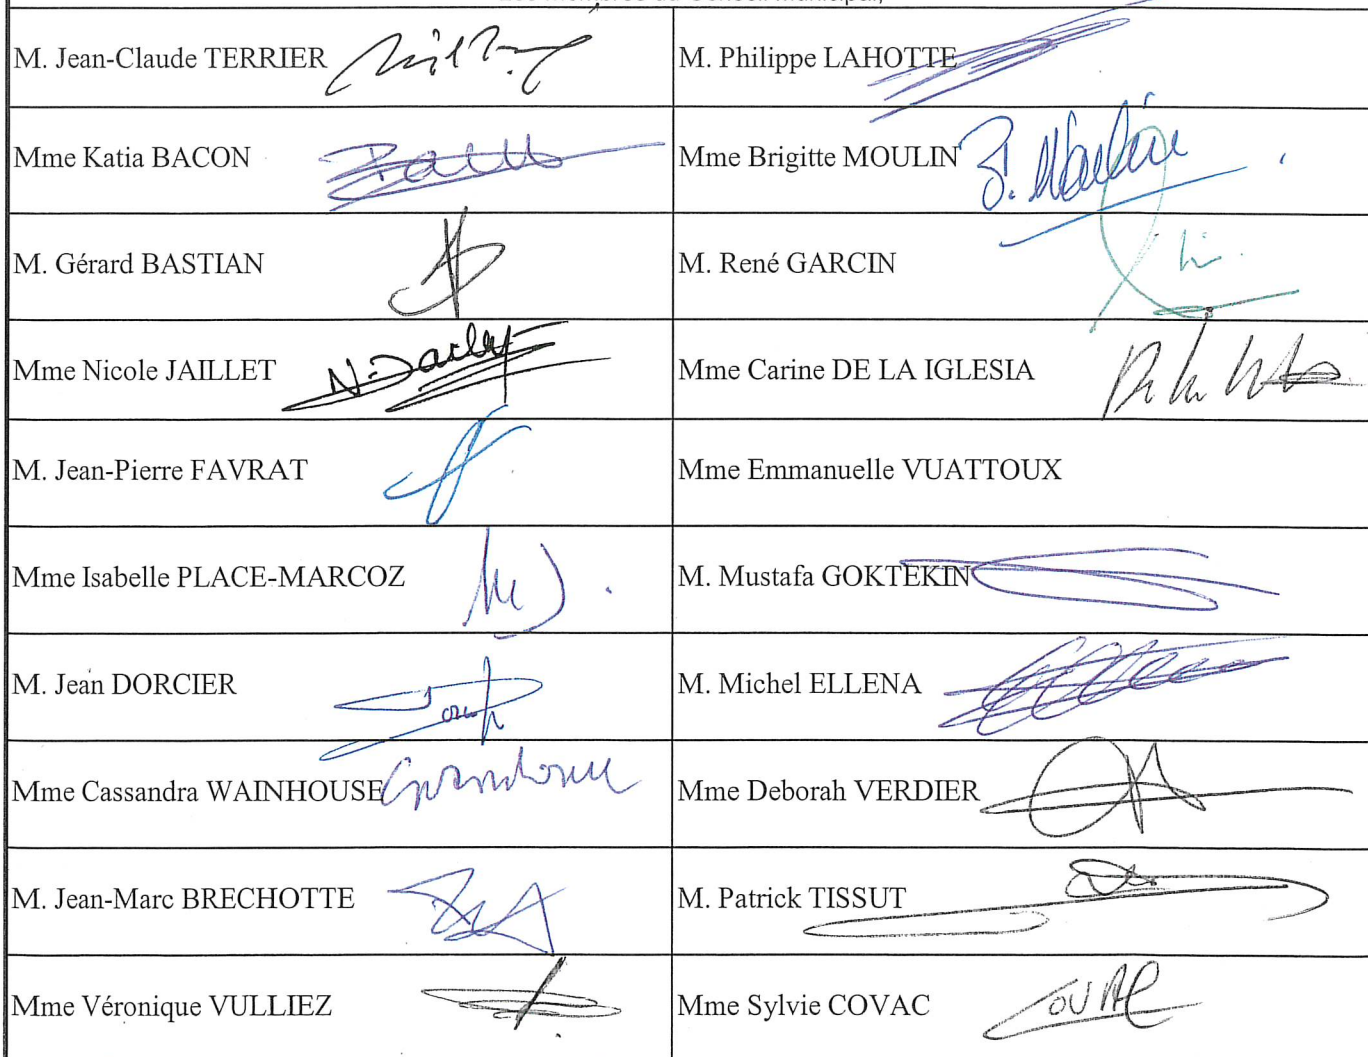 Les membres du Conseil Municipal,
M. Jean-Claude TERRIER
M. Philippe LAHOTTE
Mme Katia BACON
Mme Brigitte MOULIN B. Moulin
M. Gérard BASTIAN
M. René GARCIN
Mme Nicole JAILLET N. Jaillet
Mme Carine DE LA IGLESIA
M. Jean-Pierre FAVRAT
Mme Emmanuelle VUATTOUX
Mme Isabelle PLACE-MARCOZ
M. Mustafa GOKTEKIN
M. Jean DORCIER
M. Michel ELLENA
Mme Cassandra WAINHOUSE
Mme Deborah VERDIER
M. Jean-Marc BRECHOTTE
M. Patrick TISSUT
Mme Véronique VULLIEZ
Mme Sylvie COVAC COVAC